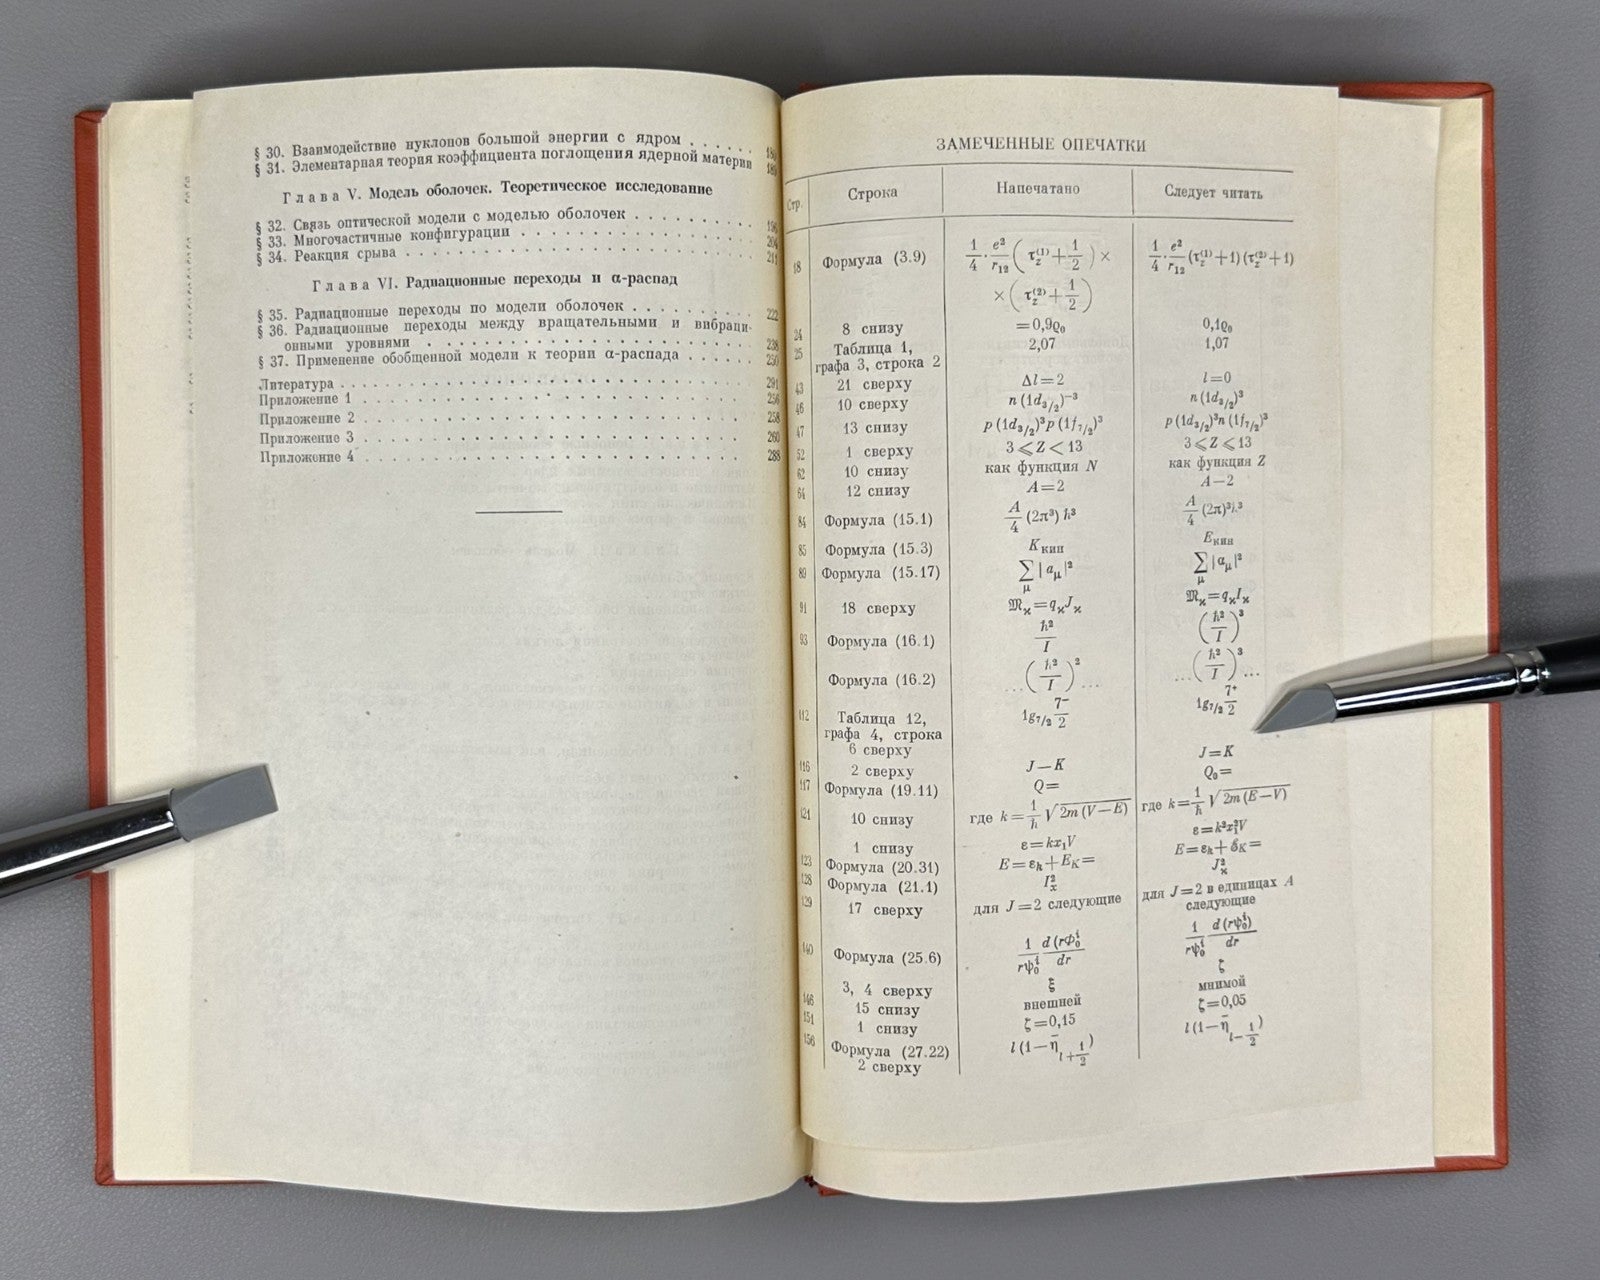 § 30. Взаимодействие нуклонов большой энергии с ядром . . . . . .
§ 31. Элементарная теория коэффициента поглощения ядерной материи
Глава V. Модель оболочек. Теоретическое исследование
§ 32. Связь оптической модели с моделью оболочек . . . . . . . . .
§ 33. Многочастичные конфигурации . . . . . . . . . . . . . . 204
§ 34. Реакция срыва . . . . . . . . . . . . . . . . . . . . . 211
Глава VI. Радиационные переходы и α-распад
§ 35. Радиационные переходы по модели оболочек . . . . . . . . . 222
§ 36. Радиационные переходы между вращательными и вибраци-
онными уровнями . . . . . . . . . . . . . . . . . . . . 238
§ 37. Применение обобщенной модели к теории α-распада . . . . . . 250
Литература . . . . . . . . . . . . . . . . . . . . . . . . . 291
Приложение 1 . . . . . . . . . . . . . . . . . . . . . . . . 256
Приложение 2 . . . . . . . . . . . . . . . . . . . . . . . . 258
Приложение 3 . . . . . . . . . . . . . . . . . . . . . . . . 260
Приложение 4 . . . . . . . . . . . . . . . . . . . . . . . . 288
ЗАМЕЧЕННЫЕ ОПЕЧАТКИ
Стр. Строка Напечатано Следует читать
18 Формула (3.9) 1/4 · e²/r₁₂ (τ_z⁽¹⁾ + 1/2) × 1/4 · e²/r₁₂ (τ_z⁽¹⁾+1) (τ_z⁽²⁾+1)
× (τ_z⁽²⁾ + 1/2)
24 8 снизу =0,9ϱ₀ 0,1ϱ₀
25 Таблица 1, 2,07 1,07
графа 3, строка 2
43 21 сверху Δl=2 l=0
46 10 сверху n (1d₃/₂)⁻³ n (1d₃/₂)³
47 13 снизу p (1d₃/₂)³p (1f₇/₂)³ p (1d₃/₂)³n (1f₇/₂)³
52 1 сверху 3⩽Z<13 3⩽Z⩽13
62 10 снизу как функция N как функция Z
64 12 снизу A=2 A−2
84 Формула (15.1) A/4 (2π³) ħ³ A/4 (2π)³ħ³
85 Формула (15.3) Kкин Eкин
89 Формула (15.17) ∑_μ |a_μ|² ∑_μ |α_μ|²
91 18 сверху 𝔐ϰ=qϰJϰ 𝔐ϰ=qϰIϰ
93 Формула (16.1) ħ²/I (ħ²/I)³
Формула (16.2) ...(ħ²/I)²... ...(ħ²/I)³...
112 Таблица 12, 1g₇/₂ 7⁻/2 1g₇/₂ 7⁺/2
графа 4, строка
6 сверху
116 2 сверху J−K J=K
117 Формула (19.11) Q= Q₀=
121 10 снизу где k=1/ħ √2m (V−E) где k=1/ħ √2m (E−V)
1 снизу ε=kx₁V ε=k²x₁²V
123 Формула (20.31) E=ε_k+E_K= E=ε_k+ℰ_K=
128 Формула (21.1) I_x² Jϰ²
129 17 сверху для J=2 следующие для J=2 в единицах A
следующие
140 Формула (25.6) 1/rψ₀ⁱ d (rΦ₀ⁱ)/dr 1/rψ₀ⁱ d (rψ₀ⁱ)/dr
3, 4 сверху ξ ζ
146 15 снизу внешней мнимой
151 1 снизу ζ=0,15 ζ=0,05
156 Формула (27.22) l (1−η̄_{l+1/2}) l (1−η̄_{l−1/2})
2 сверху